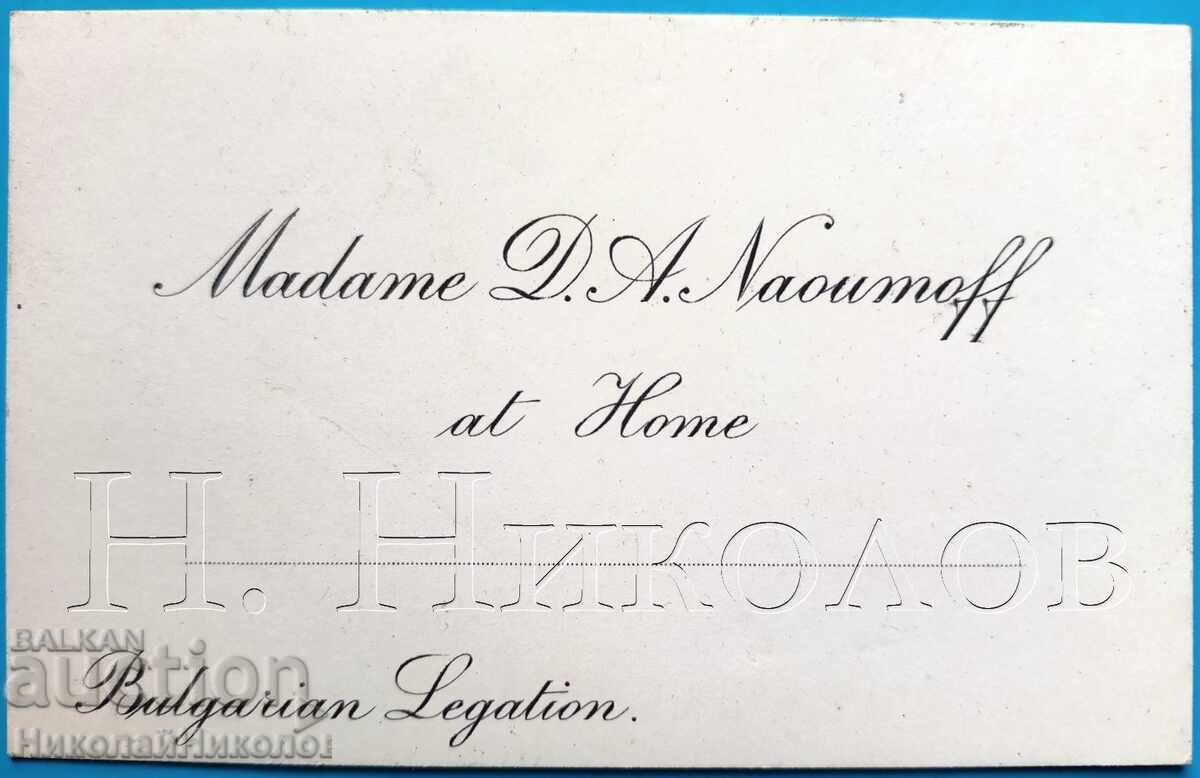 Madame D. A. Naoumoff
at Home
Н. Николов
BALKAN
auction
Bulgarian Legation.
НиколайНиколов